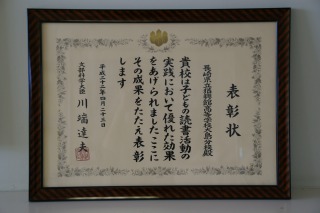 表彰状
長崎県立猶興館高等学校大島分校殿
貴校は子どもの読書活動の
実践において優れた効果
をあげられましたここに
その成果をたたえ表彰
します
平成二十二年四月二十三日
文部科学大臣 川端達夫